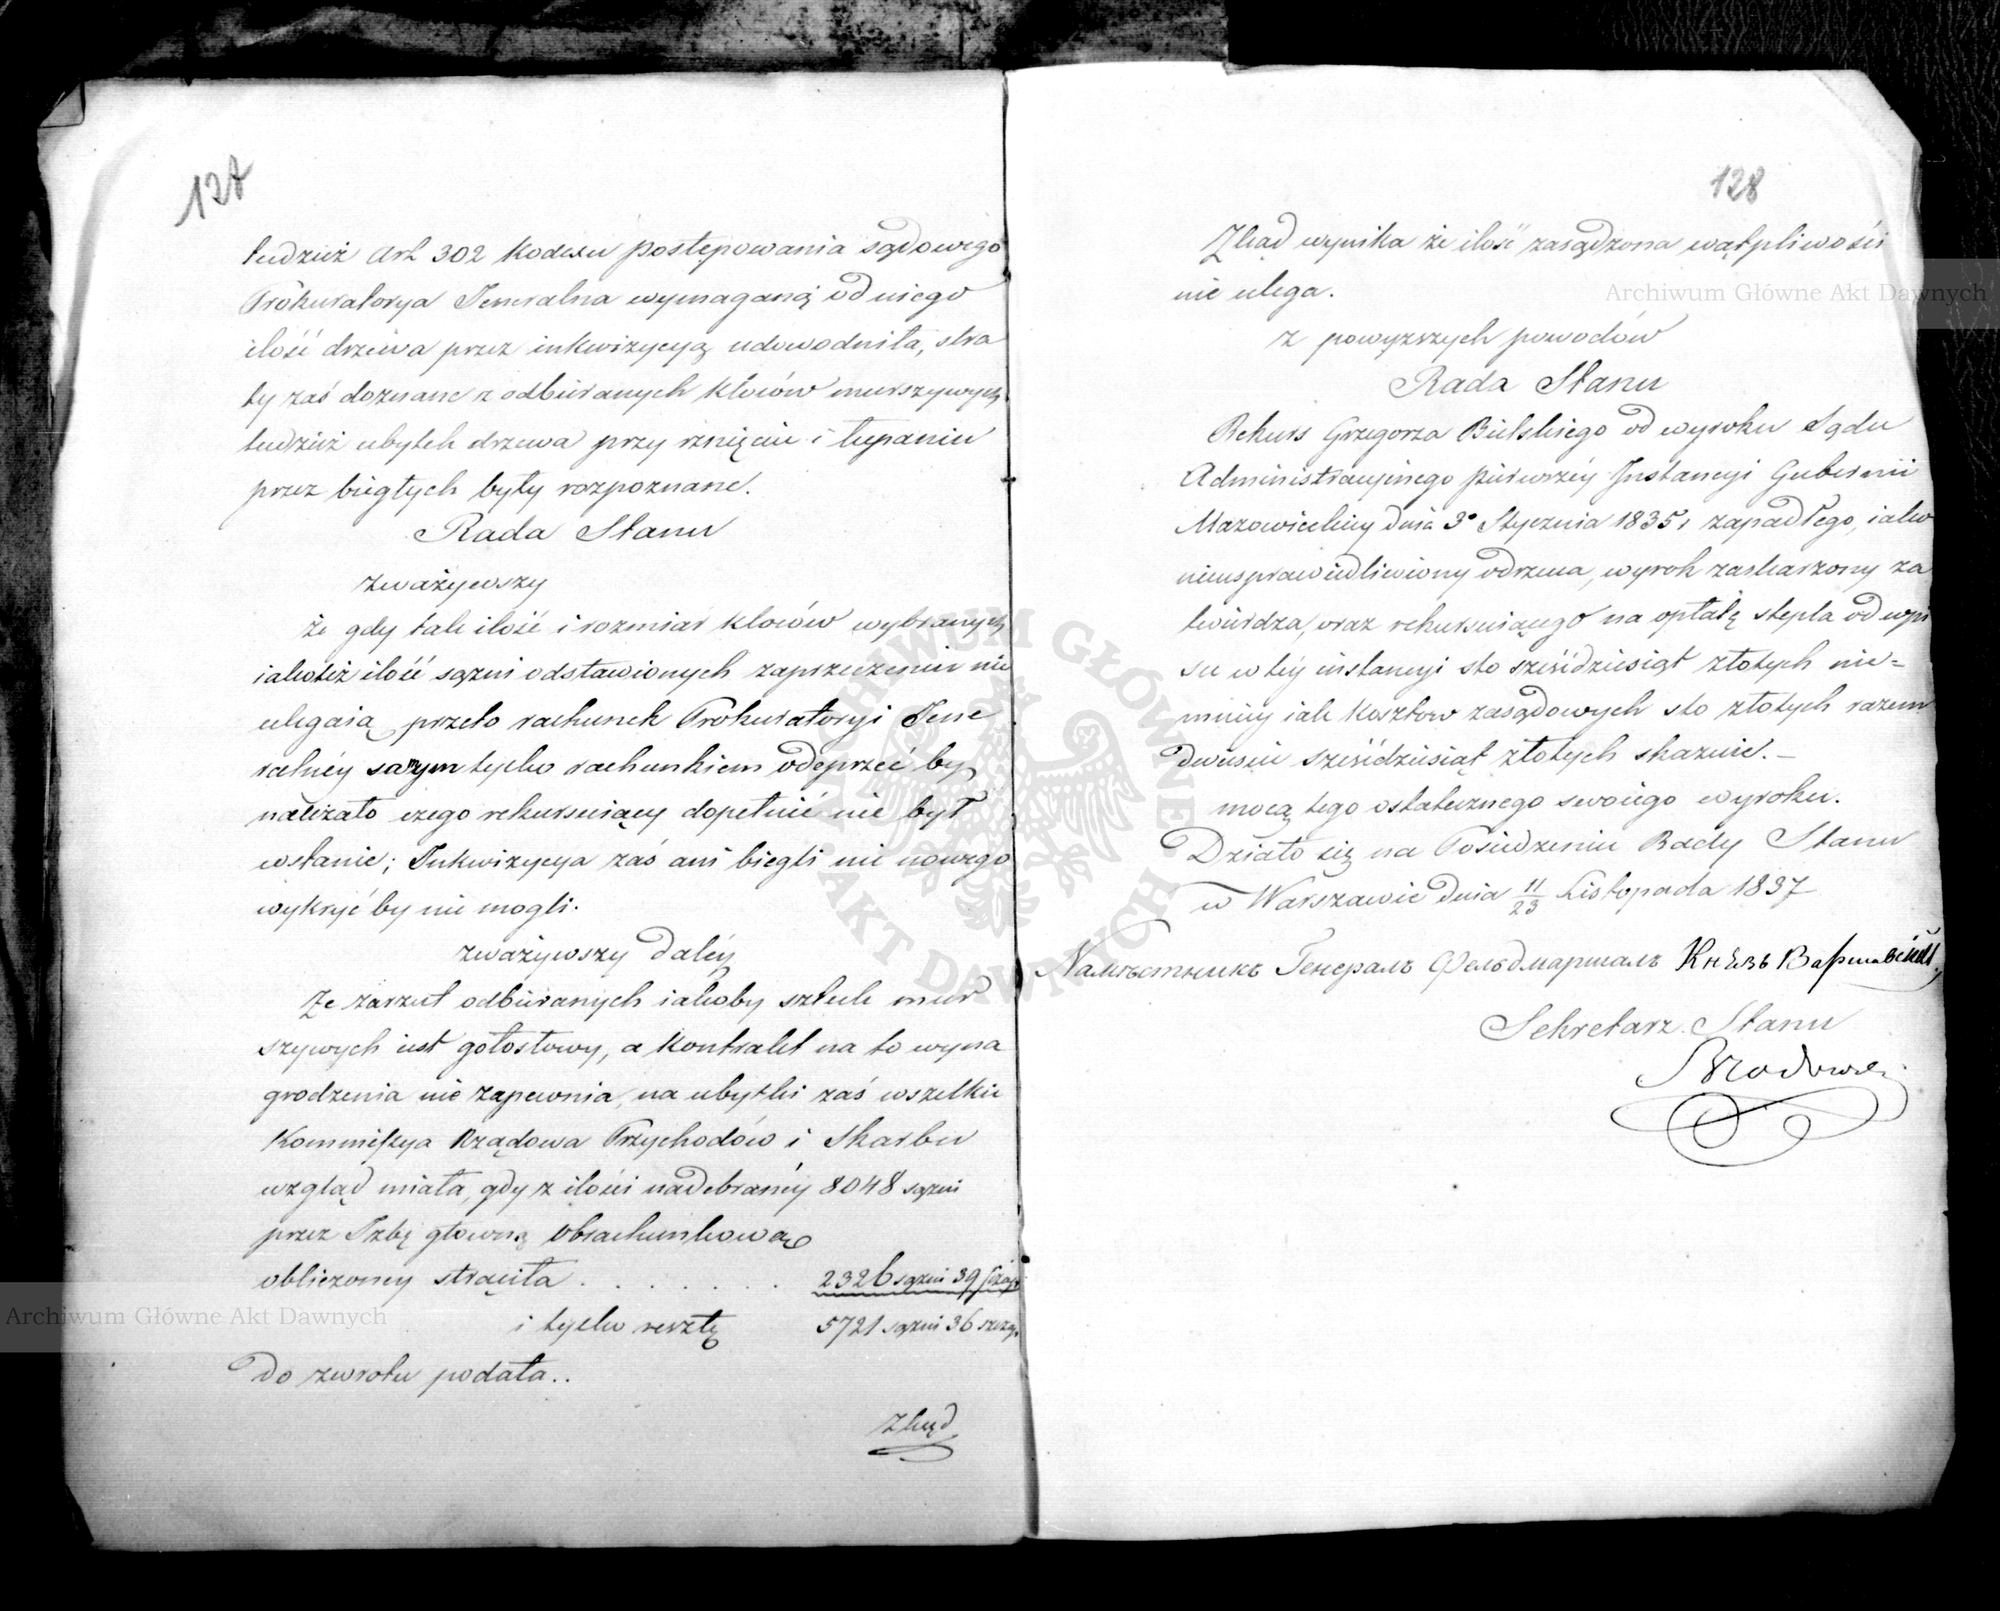 127
tudzież Art 302 Kodexu postępowania sądowego
Prokuratorya Jeneralna wymaganą od niego
ilość drzewa przez inkwizycyą udowodniła, stra
ty zaś doznane z odbieranych kloców murszywych
tudzież ubytek drzewa przy rznięciu i łupaniu
przez biegłych były rozpoznane.
Rada Stanu
zważywszy
że gdy tak ilość i rozmiar kloców wybranych
iakoteż ilość sążni odstawionych zaprzeczeniu nie
ulegaią, przeto rachunek Prokuratoryi Jene
ralnéy samym tylko rachunkiem odeprzeć by
należało czego rekursuiący dopełnić nie był
wstanie; Inkwizycya zaś ani biegli nic nowego
wykryć by nie mogli.
zważywszy daléy
Że zarzut odbieranych iakoby sztuk mur
szywych iest gołosłowny, a kontrakt na to wyna
grodzenia nie zapewnia, na ubytki zaś wszelkie
Kommissya Rządowa Przychodów i Skarbu
wzgląd miała, gdy z ilości nadebranéy 8048 sążni
przez Izbę głowną Obrachunkową
obliczoney strąciła . . . . . . 2326 sążni 39 szczap
i tylko resztę 5721 sążni 36 szczap
do zwrotu podała..
Zkąd
128
Zkąd wynika że ilość zasądzona wątpliwości
nie ulega.
z powyższych powodów
Rada Stanu
Rekurs Grzegorza Bielskiego od wyroku Sądu
Administracyinego pierwszéy Instancyi Gubernii
Mazowieckiey dnia 3o Stycznia 1835 r zapadłego, iako
nieusprawiedliwiony odrzuca, wyrok zaskarżony za
twierdza, oraz rekursuiącego na opłatę stępla od wpi
su w téy instancyi sto sześćdziesiąt złotych nie=
mniey iak kosztow zasądowych sto złotych razem
dwieście sześćdziesiąt złotych skazuie. —
mocą tego ostatecznego swoiego wyroku.
Działo się na Posiedzeniu Rady Stanu
w Warszawie dnia 11/23 Listopada 1837
Намѣстникъ Генералъ Фельдмаршалъ Князь Варшавскій
Sekretarz Stanu
Brzodowski
Archiwum Główne Akt Dawnych
Archiwum Główne Akt Dawnych
ARCHIWUM GŁÓWNE AKT DAWNYCH